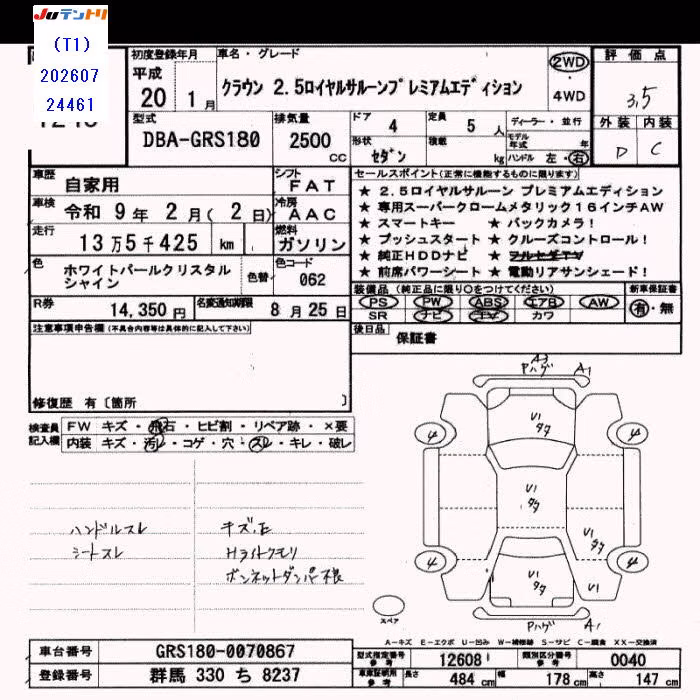 Juテントリ
(T1)
202607
24461
初度登録年月
平成
20年 1月
車名・グレード
クラウン 2.5ロイヤルサルーンプレミアムエディション
2WD
4WD
評価点
3.5
外装 内装
D C
型式
DBA-GRS180
排気量
2500
CC
ドア 4
定員 5人
形状 セダン
積載 kg
ディーラー・並行
モデル年式 年
ハンドル 左・右
車歴 自家用
シフト FAT
車検 令和 9年 2月( 2日)
冷房 AAC
走行 13万5千425 km
燃料 ガソリン
色 ホワイトパールクリスタルシャイン
色替
色コード 062
R券 14,350円
名変通知期限 8月25日
セールスポイント(正常に機能するものに限ります)
★ 2.5ロイヤルサルーン プレミアムエディション
★ 専用スーパークロームメタリック16インチAW
★ スマートキー ★ バックカメラ!
★ プッシュスタート ★ クルーズコントロール!
★ 純正HDDナビ ★ フルセグTV
★ 前席パワーシート ★ 電動リアサンシェード!
装備品(純正品に限り○をつけてください)
PS PW ABS エアB AW
SR ナビ TV カワ
新車保証書
有・無
後日品 保証書
注意事項申告欄(不具合内容等は具体的に記入して下さい)
修復歴 有〔箇所 〕
検査員記入欄
FW キズ・飛石・ヒビ割・リペア跡・×要
内装 キズ・汚レ・コゲ・穴・スレ・キレ・破レ
ハンドルスレ
シートスレ
キズ.E
Hライトクモリ
ボンネットダンパー不良
A3
Pハゲ A1
U1
タタ
4 4
U1
タタ
U1
タタ
4 4
U1
タタ
U1
Pハゲ A1
スペア
A-キズ E-エクボ U-凹み W-補修跡 S-サビ C-腐食 XX-交換済
車台番号 GRS180-0070867
登録番号 群馬 330 ち 8237
型式指定番号 参考 12608
類別区分番号 参考 0040
車庫証明用 参考 長さ 484cm 幅 178cm 高さ 147cm